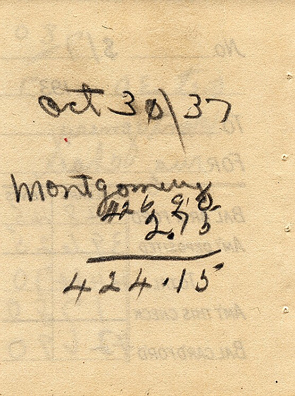 Oct 30/37
Montgomery
426.90
2.75
424.15